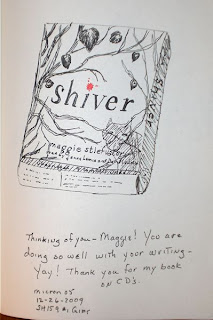 shiver
maggie stiefvater
shiver
Thinking of you - Maggie! You are
doing so well with your writing -
Yay! Thank you for my book
on CD's.
micron 05
12-26-2009